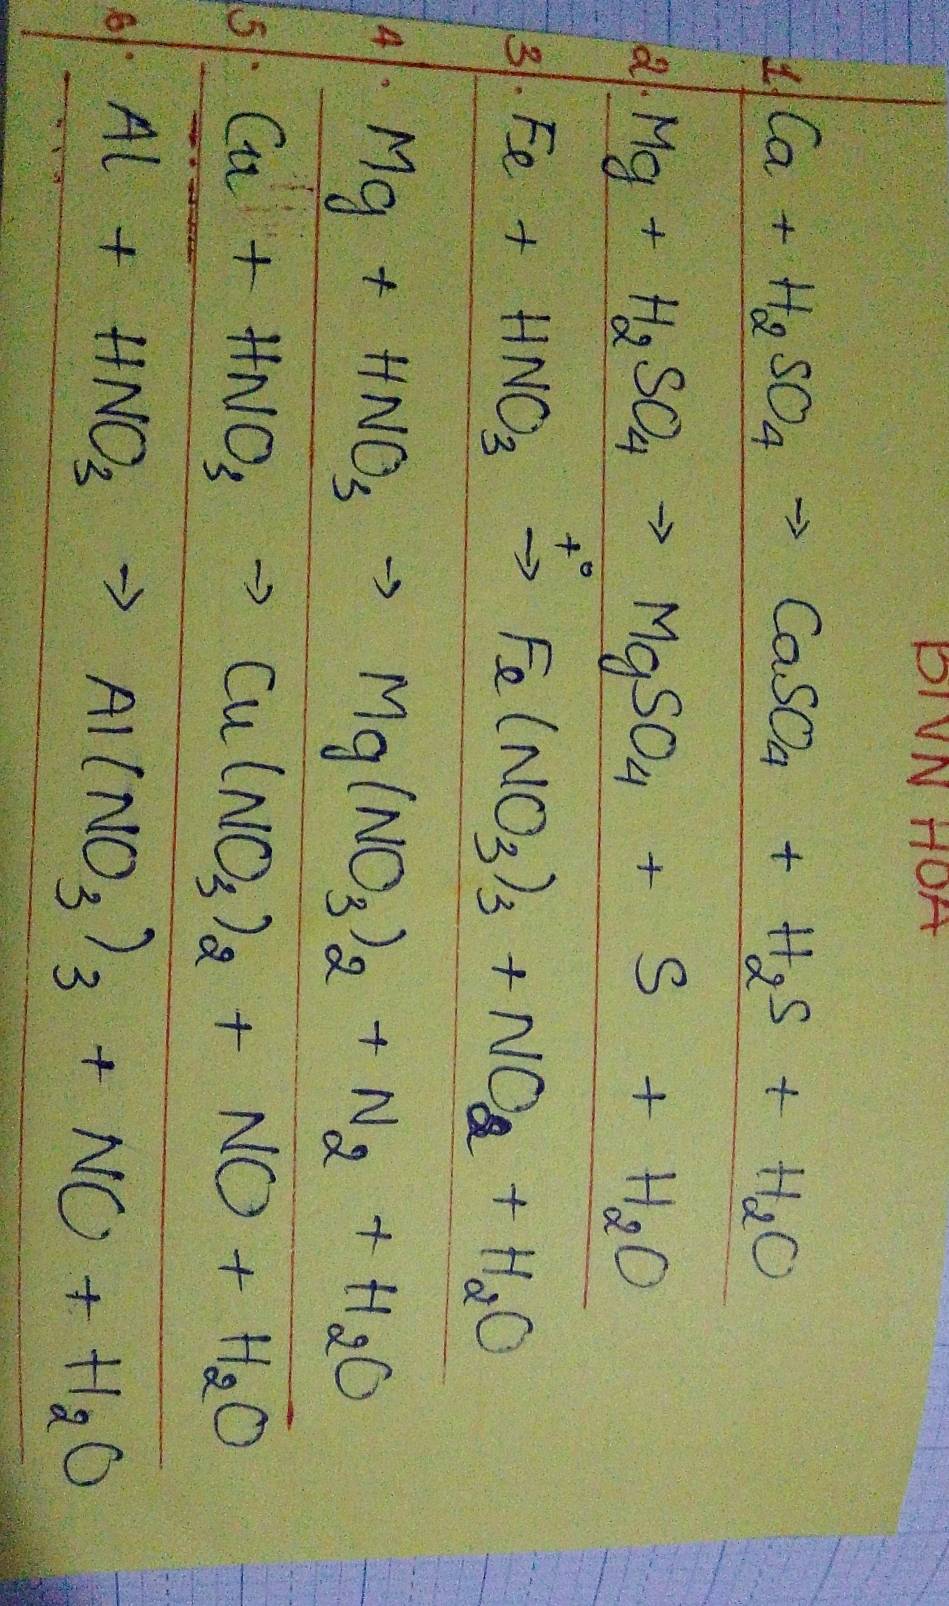 BINN HOA
1. Ca + H₂SO₄ → CaSO₄ + H₂S + H₂O
2. Mg + H₂SO₄ → MgSO₄ + S + H₂O
3. Fe + HNO₃ →t° Fe(NO₃)₃ + NO₂ + H₂O
4. Mg + HNO₃ → Mg(NO₃)₂ + N₂ + H₂O
5. Cu + HNO₃ → Cu(NO₃)₂ + NO + H₂O
6. Al + HNO₃ → Al(NO₃)₃ + NO + H₂O